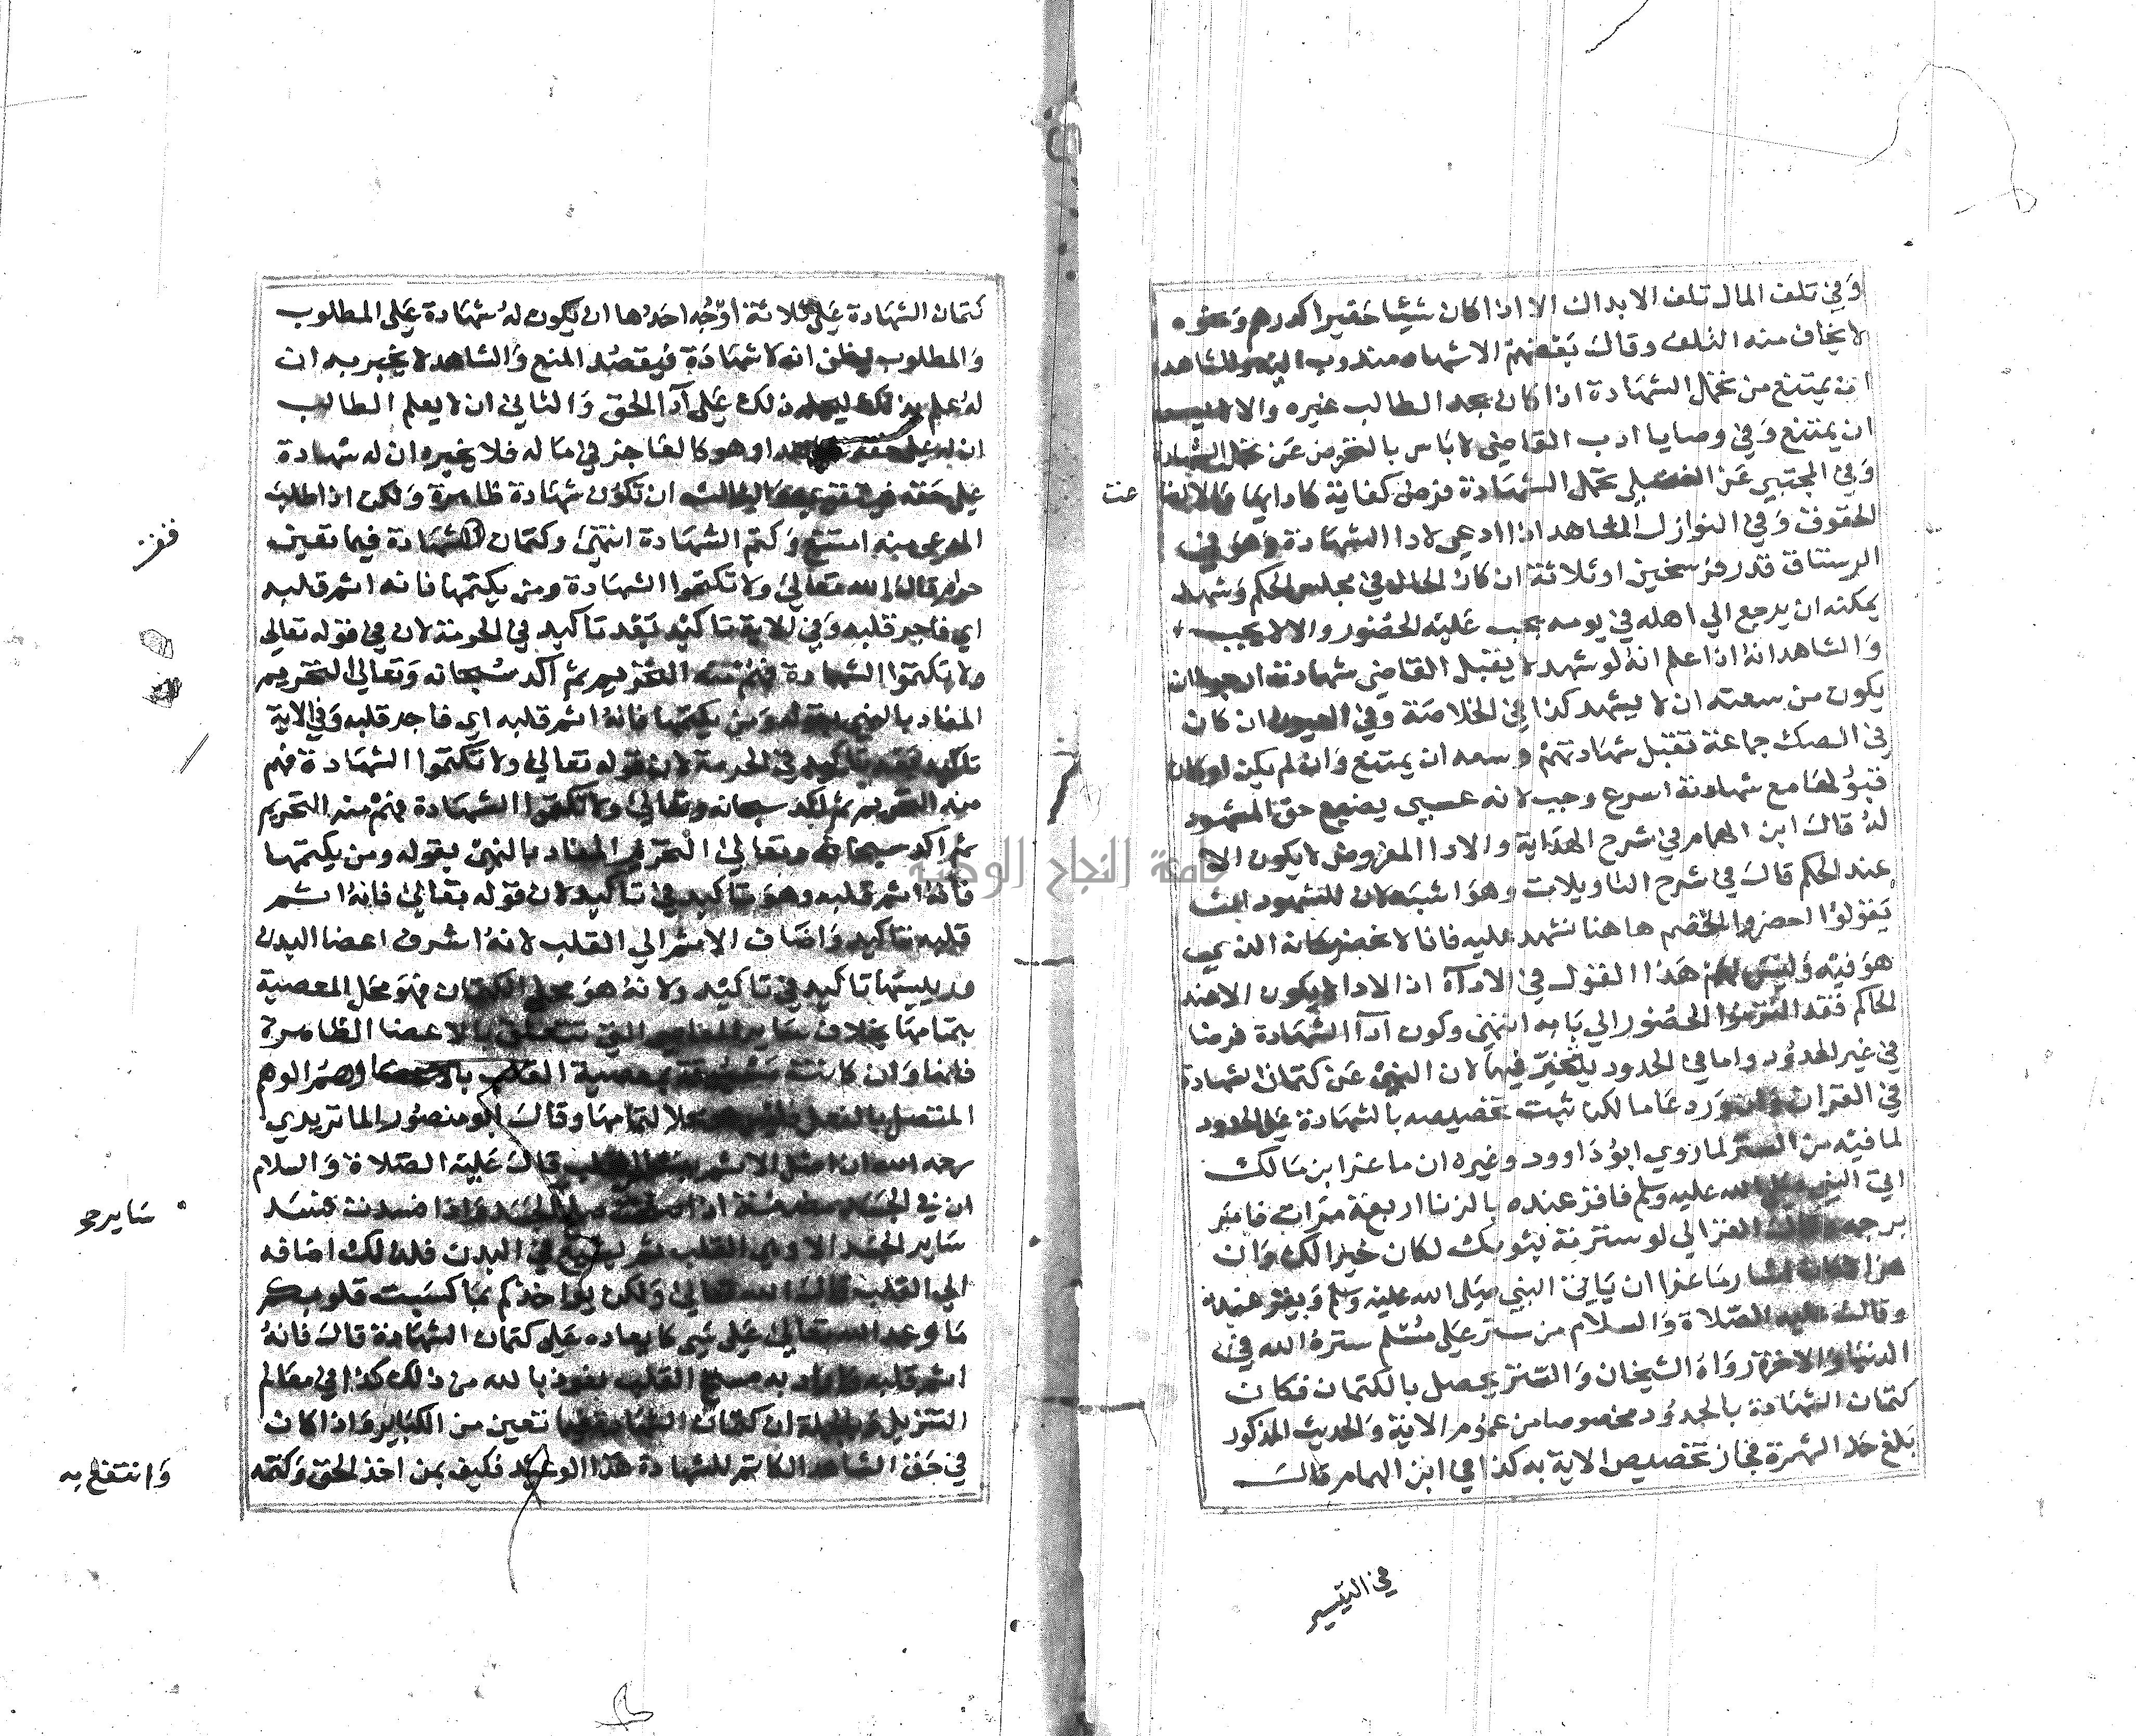 وفي تلف المال تلف الابدان الا اذا كان شيئا حقيرا كدرهم ونحوه
لا يخاف منه التلف وقال بعضهم الاشهاد مندوب اليه وللشاهد
ان يمتنع من تحمل الشهادة اذا كان يجد الطالب غيره والا لا يسعه
ان يمتنع وفي وصايا ادب القاضي لا باس بالتحرز عن تحمل الشهادة
وفي المجتبي عن الفضلي تحمل الشهادة فرض كفاية كادايها والا لضا
عت
الحقوق وفي النوازل الشاهد اذا ادعي لادا الشهادة وهو في
الرستاق قدر فرسخين او ثلاثة ان كان الحال في مجلس الحكم وشهد
يمكنه ان يرجع الي اهله في يومه يجب عليه الحضور والا لا يجب
والشاهد انه اذا علم انه لو شهد لا يقبل القاضي شهادته ارجو ان
يكون من سعته ان لا يشهد كذا في الخلاصة وفي العيون ان كان
في الصك جماعة تقبل شهادتهم وسعه ان يمتنع وان لم يكن او كان
قبولها مع شهادته اسرع وجب لانه عسي يضيع حق المشهود
له قال ابن الهمام في شرح الهداية والادا المفروض لا يكون الا
عند الحكم قال في شرح التاويلات وهو اشبه لان للشهود ان
يقولوا احضروا الخصم هاهنا نشهد عليه فانا لا نحضر مكانه الذي
هو فيه وليس لهم هذا القول في الادآء اذ الادا لا يكون الا عند
الحاكم فقد التزموا الحضور الي بابه انتهي وكون ادآ الشهادة فرضا
في غير الحدود واما في الحدود يتخير فيها لان النهي عن كتمان الشهادة
في القران وان ورد عاما لكن ثبت تخصيصه بالشهادة علي الحدود
لما فيه من الستر لما روي ابو داوود وغيره ان ماعز ابن مالك
اتي النبي صلي الله عليه وسلم فاقر عنده بالزنا اربعة مرات فامر
برجمه وقال لهزالي لو سترته بثوبك لكان خيرا لك وان
هزا كان اشار ماعزا ان ياتي النبي صلى الله عليه وسلم ويقر عنده
وقال عليه الصلاة والسلام من ستر علي مسلم ستره الله في
الدنيا والاخرة رواه الشيخان والستر يحصل بالكتمان فكان
كتمان الشهادة بالحدود مخصوصا من عموم الاية والحديث المذكور
بلغ حد الشهرة فجاز تخصيص الاية به كذا في ابن الهمام قال
في التيسير
كتمان الشهادة علي ثلاثة اوجه احدها ان يكون له شهادة علي المطلوب
والمطلوب يظن انه لا شهادة فيقصد المنع والشاهد لا يخبر به ان
له علم بذلك ليحمله ذلك علي ادآ الحق والثاني ان لا يعلم الطالب
ان له علي حقه شاهد او هو كالعاجز في ماله فلا يخبره ان له شهادة
علي حقه والثالث ان تكون شهادة ظاهرة ولكن اذا طلب
المدعي منه امتنع وكتم الشهادة انتهي وكتمان الشهادة فيما تعين
حرام قال الله تعالي ولا تكتموا الشهادة ومن يكتمها فانه اثم قلبه
اي فاجر قلبه وفي الاية تاكيد بعد تاكيد في الحرمة لان في قوله تعالي
ولا تكتموا الشهادة فهم منه التحريم ثم اكد سبحانه وتعالي التحريم
المفاد بالنهي بقوله ومن يكتمها فانه اثم قلبه اي فاجر قلبه وفي الاية
تاكيد بعد تاكيد في الحرمة لان قوله تعالي ولا تكتموا الشهادة فهم
منه التحريم ثم اكد سبحانه وتعالي ولا تكتموا الشهادة فهم منه التحريم
ثم اكد سبحانه وتعالي التحريم المفاد بالنهي بقوله ومن يكتمها
فانه اثم قلبه وهو تاكيد في تاكيد لان قوله تعالي فانه اثم
قلبه تاكيد واضاف الاثم الي القلب لانه اشرف اعضا البدن
ورييسها تاكيد في تاكيد ولانه هو محل الكتمان فهو محل المعصية
بتمامها بخلاف ساير المعاصي التي تتعلق بالاعضا الظاهرة
فانها وان كانت مسبوقة بمعصية القلب
المتصل بالفعل محلا لتمامها وقال ابو منصور الماتريدي
رحمه الله ان اصل الاثم القلب قال عليه الصلاة والسلام
ان في الجسد مضغة اذا صلحت صلح الجسد واذا فسدت فسد
ساير الجسد الا وهي القلب ثم في البدن فلذلك اضافه
الي القلب قال الله تعالي ولكن يواخذكم بما كسبت قلوبكم
ما وعد الله تعالي علي شي كايعاده علي كتمان الشهادة قال فانه
اثم قلبه واراد به مسخ القلب نعوذ بالله من ذلك كذا في معالم
التنزيل وبالجملة ان كتمان الشهادة فيما تعين من الكباير واذا كان
في حق الشاهد الكاتم للشهادة هذا الوعيد فكيف بمن اخذ الحق وكتمه
وانتفع به
جامعة النجاح الوطنية